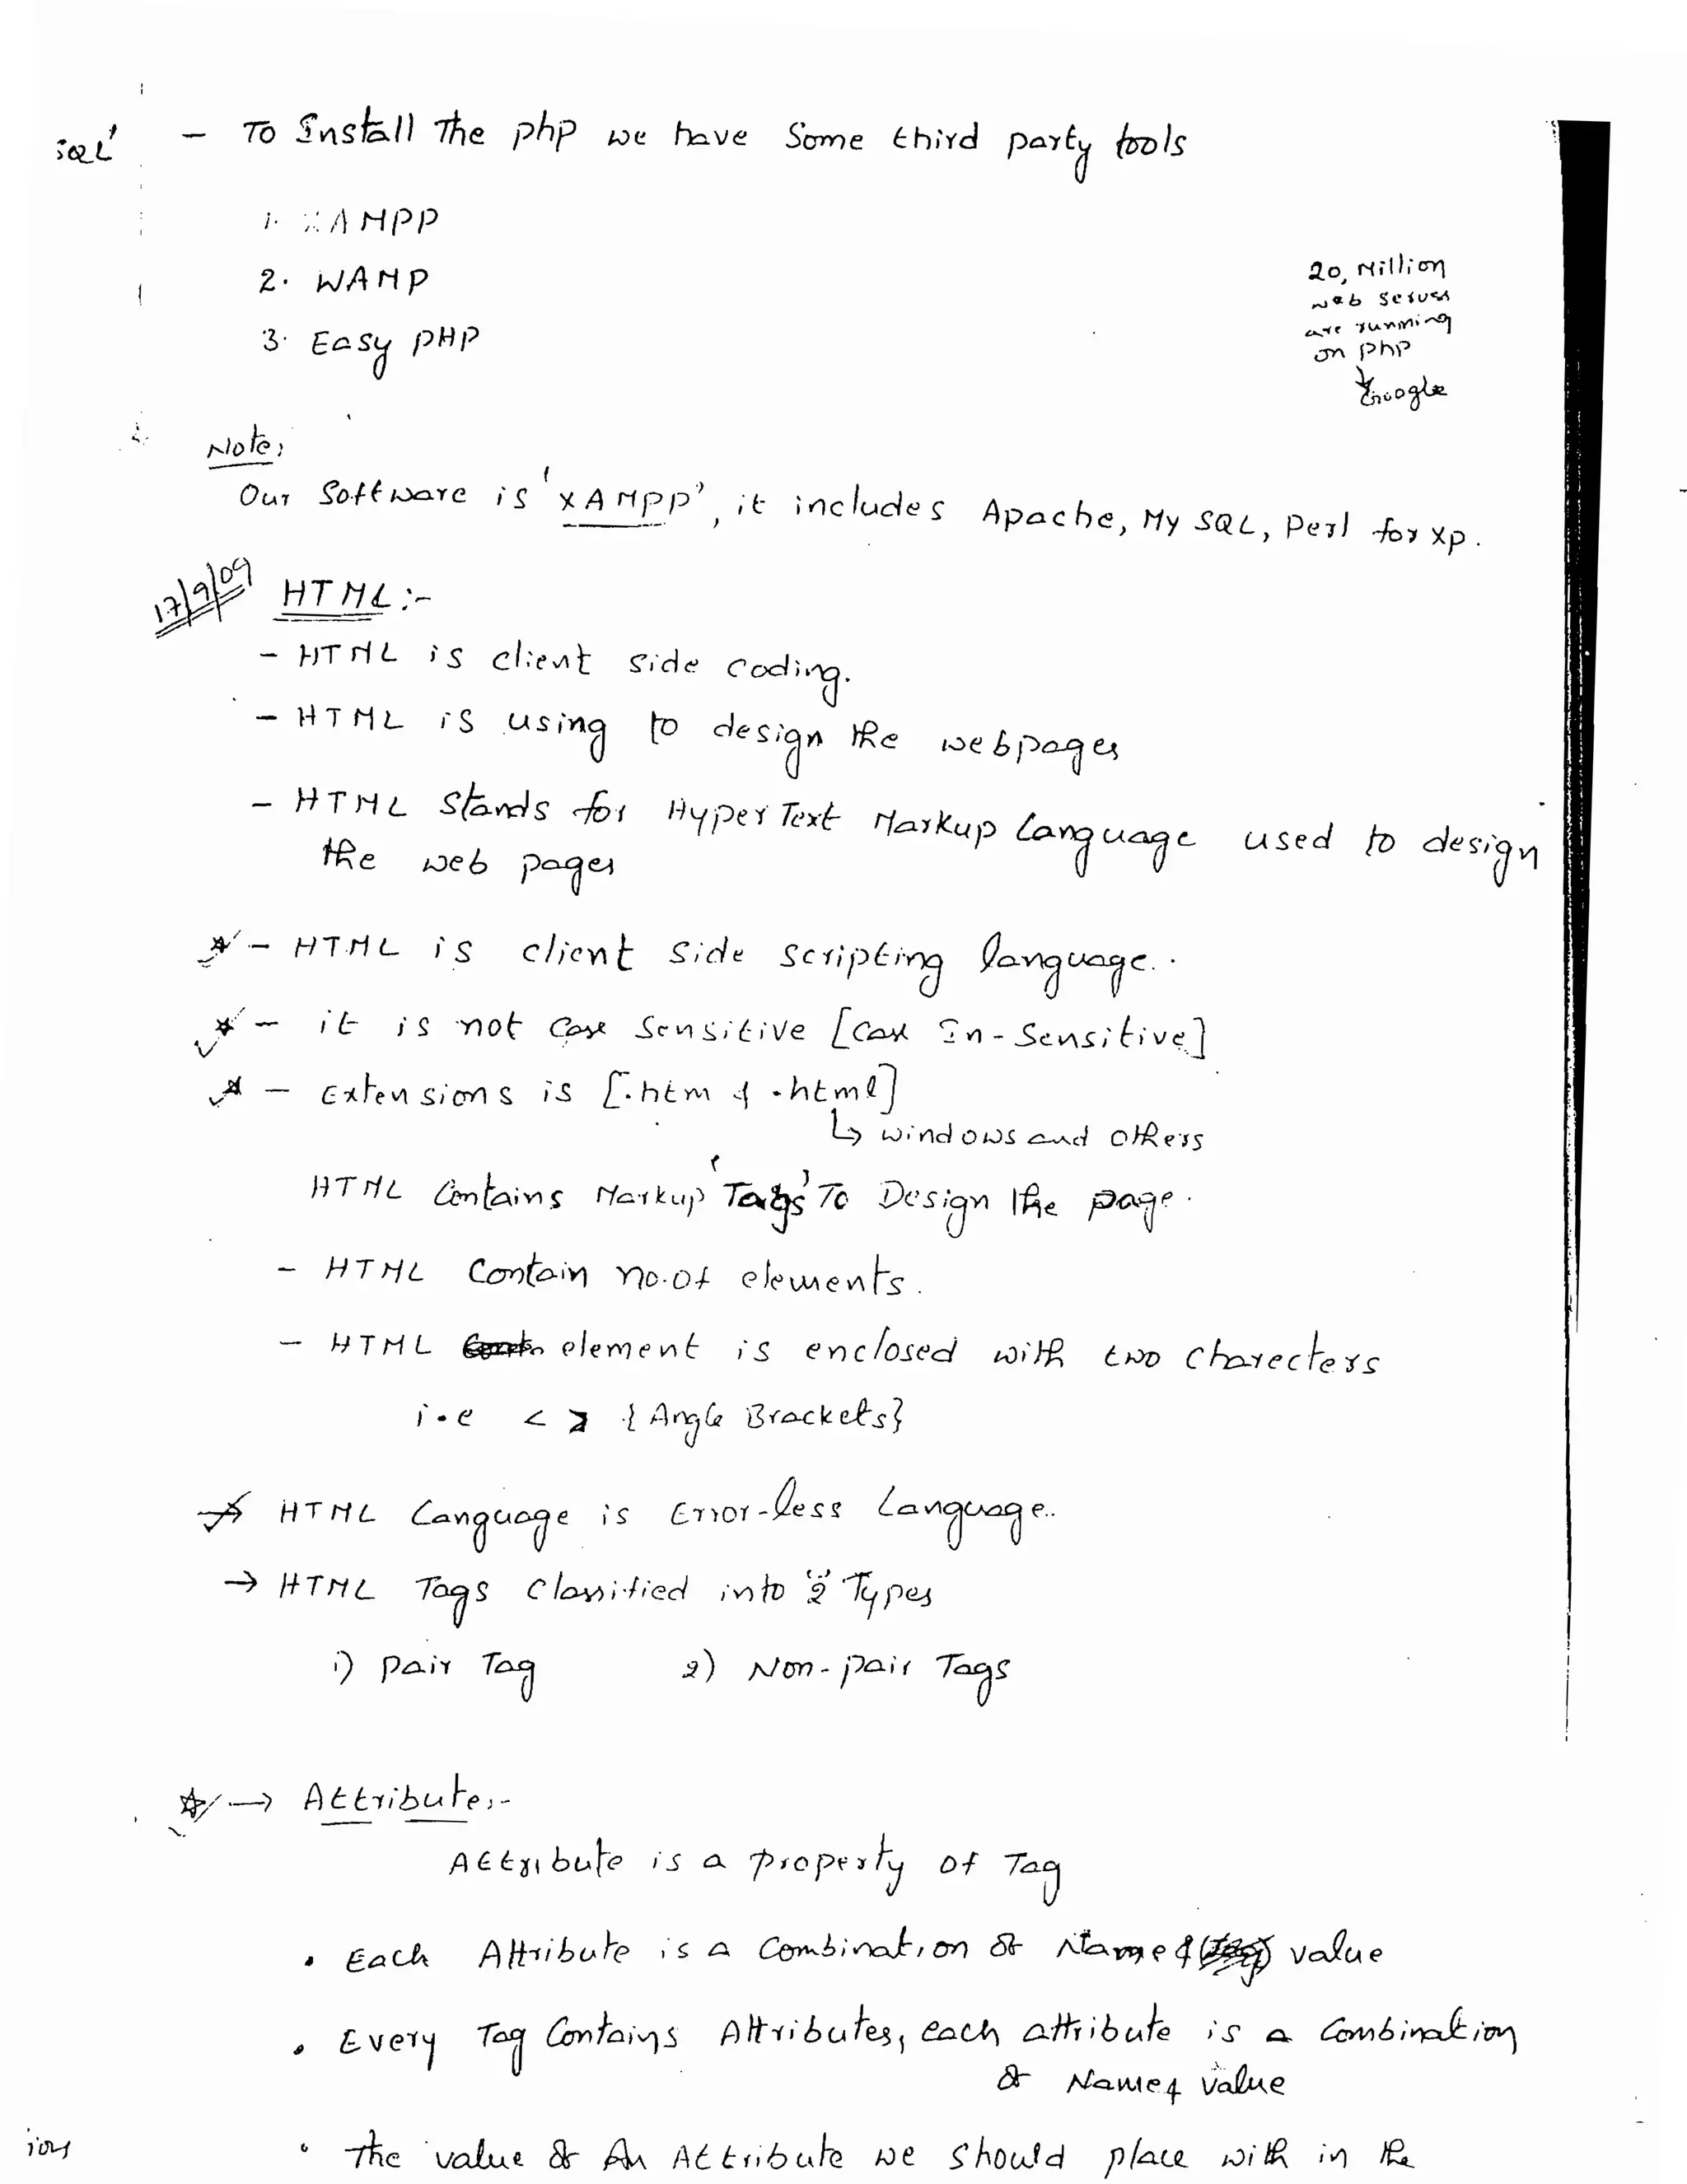 - To Install The php we have Some third party tools
1. XAMPP
2. WAMP
3. Easy PHP
20, Million
web servers
are running
on php
↓
Google
Note:
Our Software is 'XAMPP', it includes Apache, My SQL, Perl for XP.
17/9/09 HTML:-
- HTML is client side coding.
- HTML is using to design the webpages
- HTML stands for Hyper Text Markup Language used to design
the web pages
- HTML is client side scripting language.
- it is not Case Sensitive [Case In-Sensitive]
- Extensions is [.htm & .html]
↳ windows and others
HTML Contains Markup 'Tags' To Design the page.
- HTML Contain no.of elements.
- HTML element is enclosed with two charecters
i.e < > {Angle Brackets}
→ HTML Language is Error-less Language..
→ HTML Tags Classified into "2" Types
1) Pair Tag 2) Non-pair Tags
→ Attribute:-
Attribute is a property of Tag
• Each Attribute is a Combination of Name & value
• Every Tag Contains Attributes, each attribute is a Combination
of Name & value
• The value of An Attribute we should place with in the